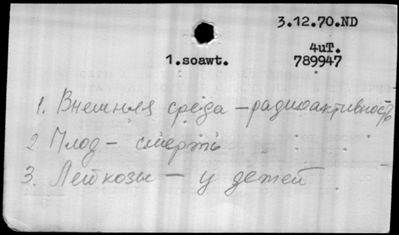 3.12.70.ND
4uT.
1.soawt. 789947
1. Внешняя среда – радиоактивность
2. Плод – смерть
3. Лейкозы – у детей